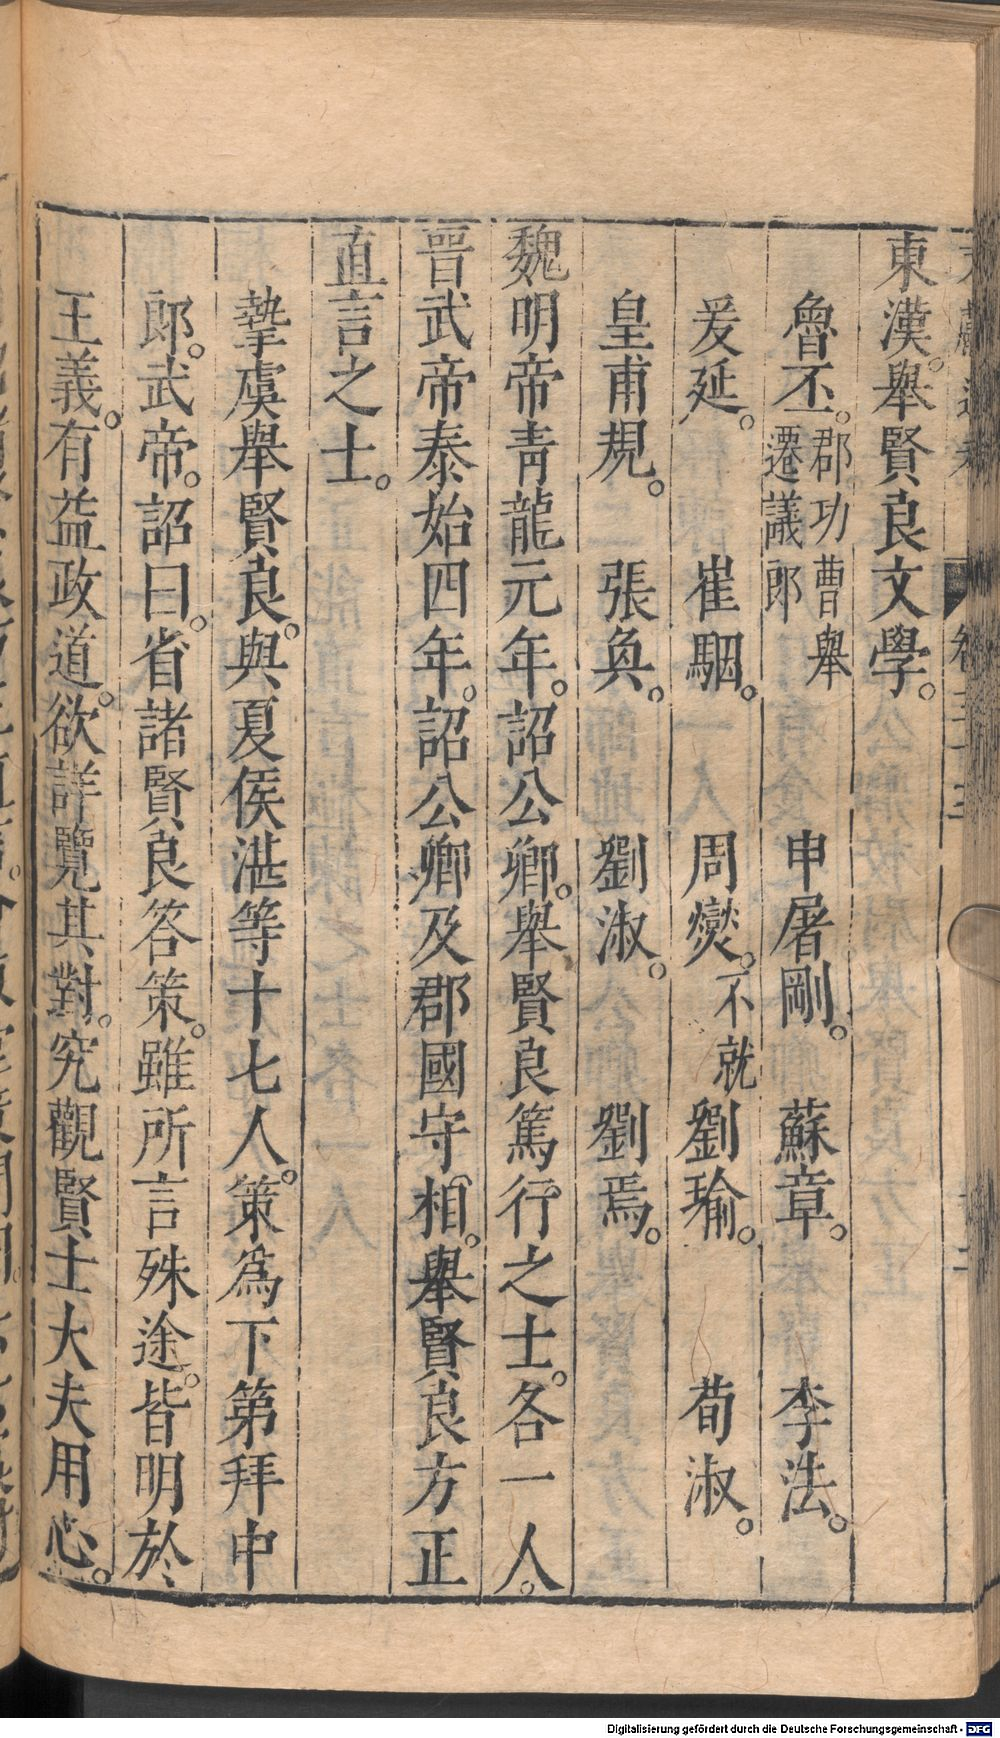 東漢。舉賢良文學。
魯丕。郡功曹舉遷議郎 申屠剛。 蘇章。 李法。
爰延。 崔駰。 周燮。不就 劉瑜。 荀淑。
皇甫規。 張奐。 劉淑。 劉焉。
魏明帝青龍元年。詔公卿。舉賢良篤行之士。各一人。
晉武帝泰始四年。詔公卿及郡國守相。舉賢良方正
直言之士。
摯虞舉賢良。與夏侯湛等十七人。策爲下第拜中
郎。武帝。詔曰。省諸賢良答策。雖所言殊途。皆明於
王義。有益政道。欲詳覽其對。究觀賢士大夫用心。
Digitalisierung gefördert durch die Deutsche Forschungsgemeinschaft - DFG